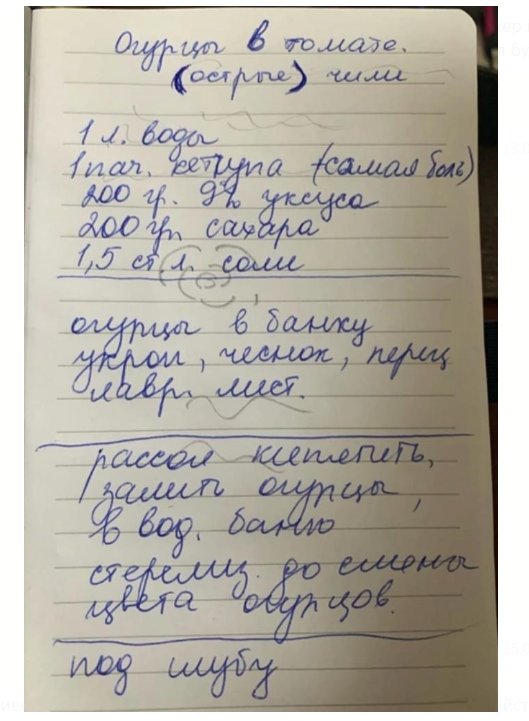 Огурцы в томате.
(острые) чили
1 л. воды
1 пач. кетчупа (самая боль)
200 гр. 9% уксуса
200 гр. сахара
1,5 ст л. соли
огурцы в банку
укроп, чеснок, перец
лавр. лист.
рассол кипятить,
залить огурцы,
в вод. баню
стерелиз. до смены
цвета огурцов.
под шубу